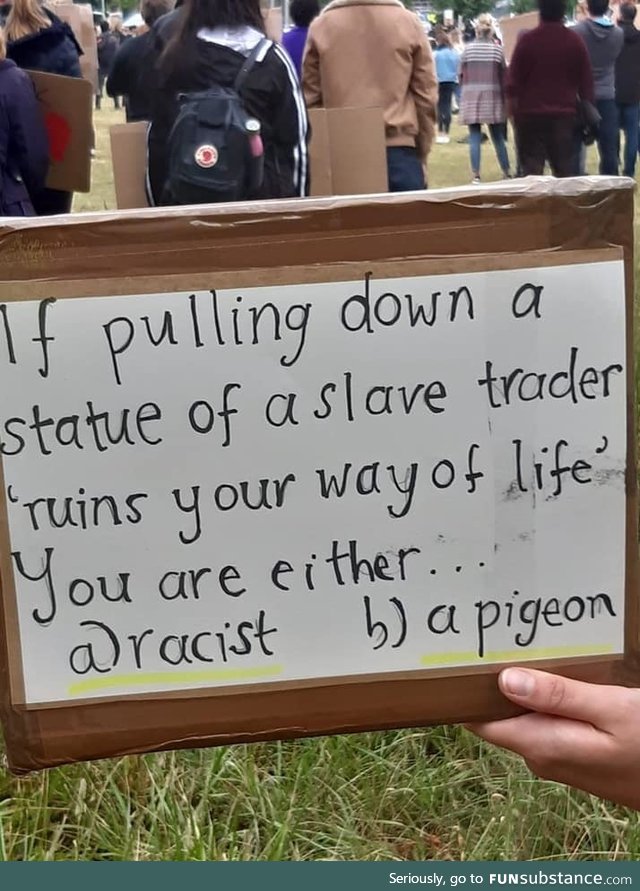 If pulling down a
statue of a slave trader
'ruins your way of life'
You are either...
a) racist b) a pigeon
Seriously, go to FUNsubstance.com